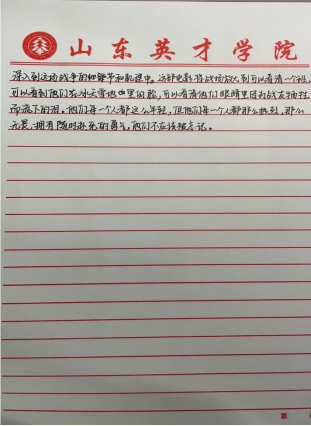 山东英才学院
深入到这场战争的细节和肌理中。这部电影将战场放大到可以看清一个班,
可以看到他们在冰天雪地里的脸,可以看清他们眼睛里因为战友牺牲
而流下的泪。他们每一个人都这么年轻,但他们每一个人都那么热烈,那么
无畏、拥有随时赴死的勇气,他们不应该被忘记。
第